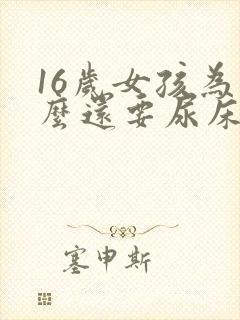 16歲女孩為
麼還要尿床
塞申斯